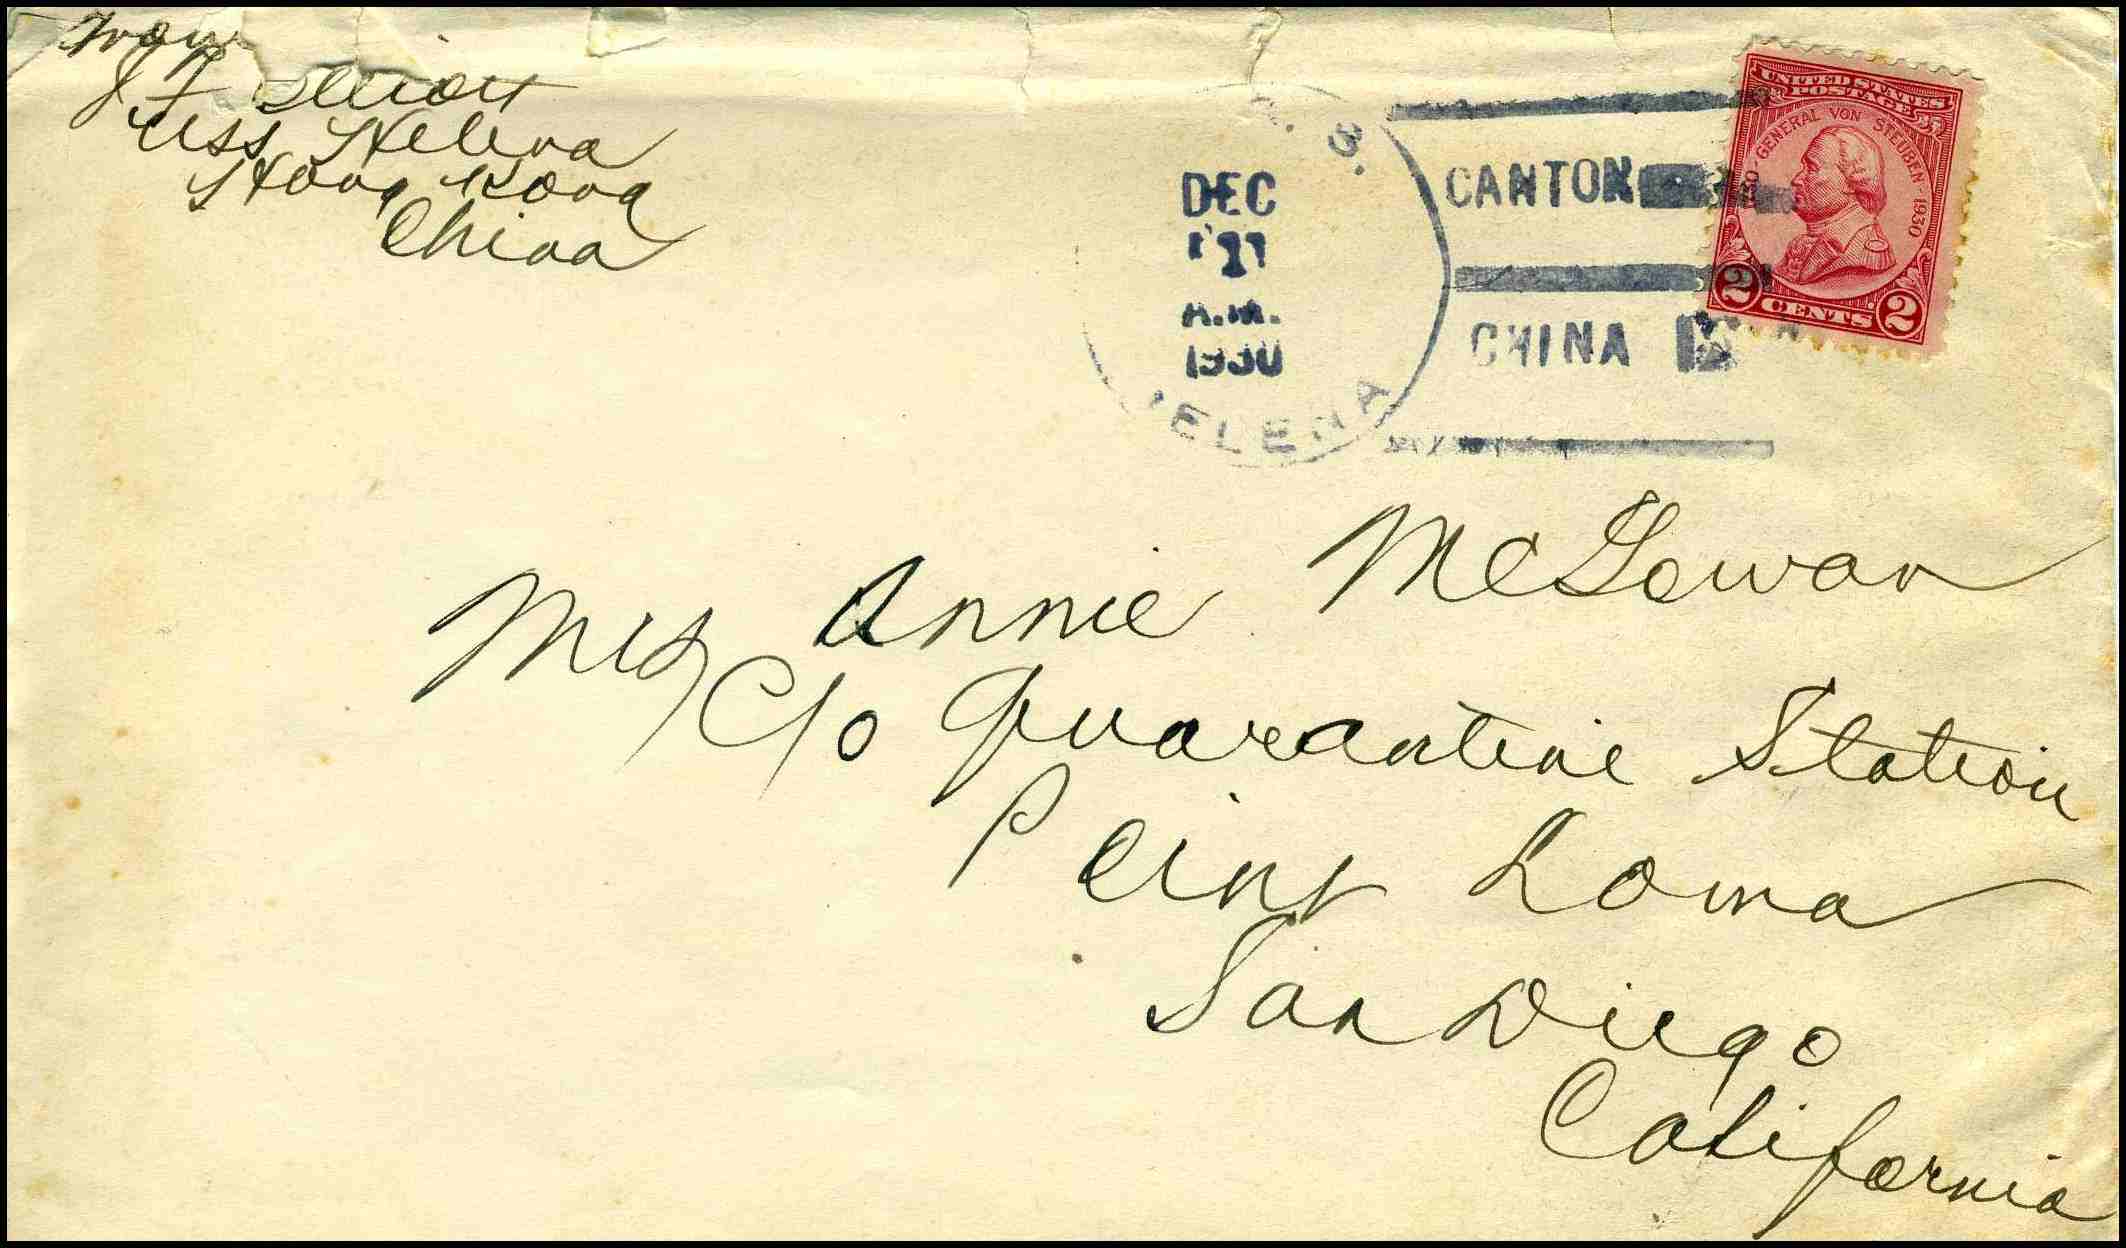 From
J F Elliott
USS Helena
Hong Kong
China
S.
DEC
11
A.M.
1930
HELENA
CANTON
CHINA
UNITED STATES
POSTAGE
GENERAL VON STEUBEN · 1930
2 CENTS 2
Mrs Annie McGowan
C/o Quarantine Station
Point Loma
San Diego
California